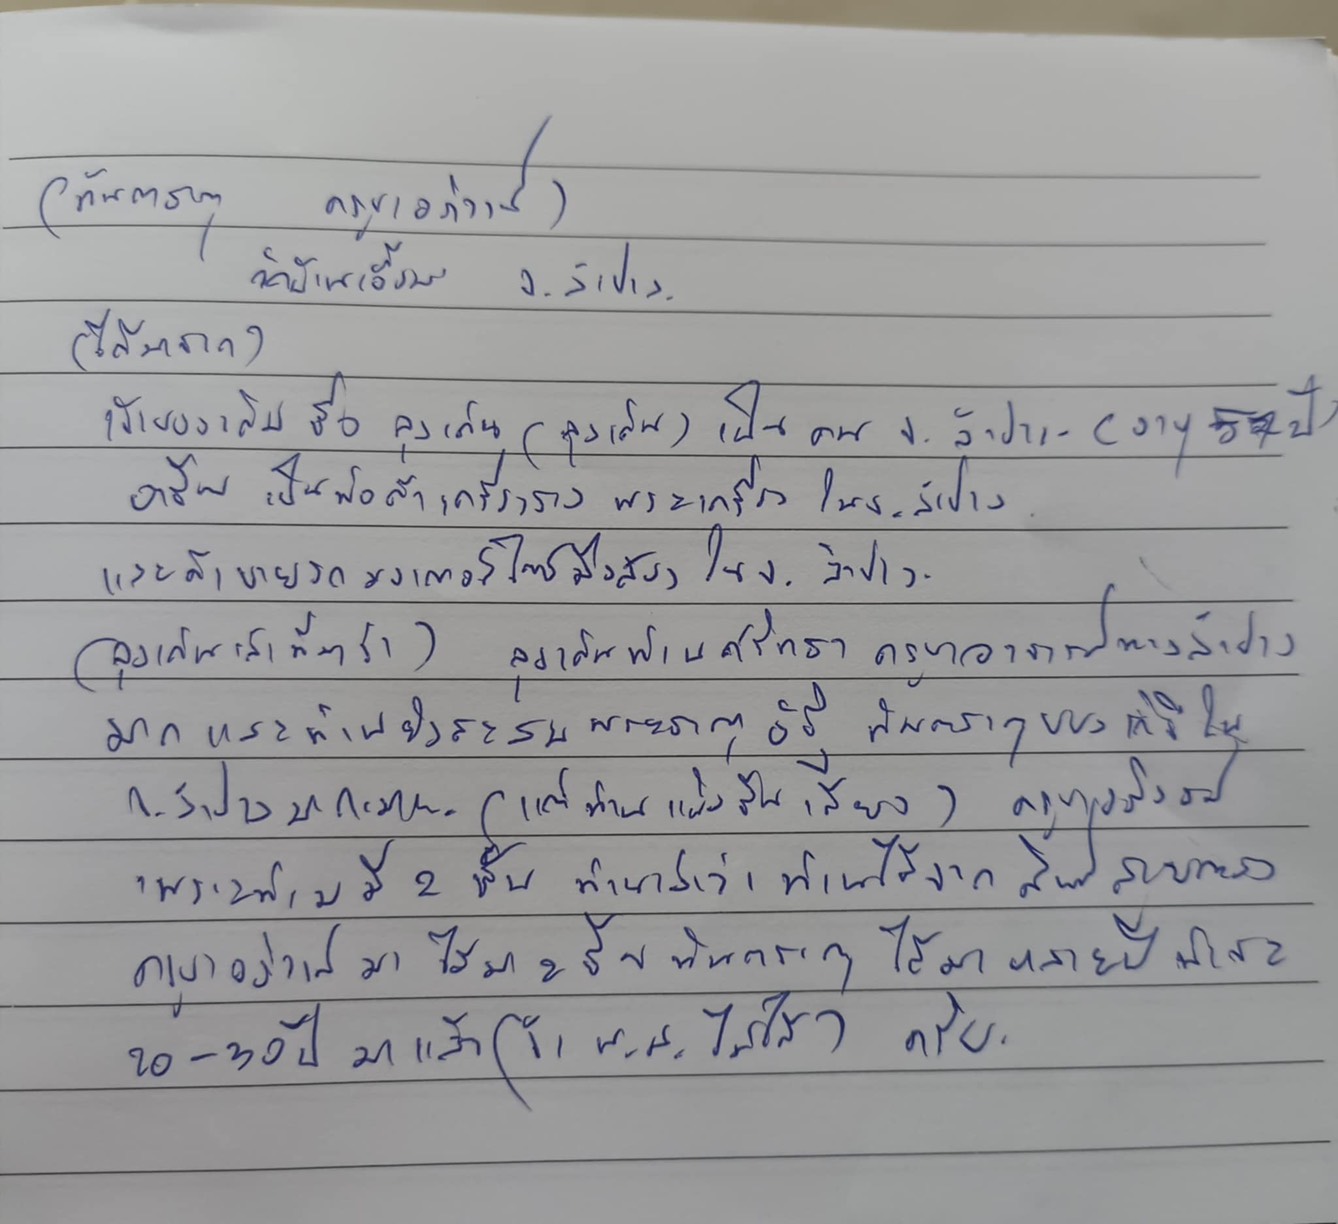 (ทันตธาตุ ครูบาอภิวงศ์)
วัดบ้านเอื้อม จ. ลำปาง.
(ได้มาจาก)
เจ้าของเดิม ชื่อ ลุงเส่น (ลุงเส่น) เป็น คน จ. ลำปาง (อายุ ปี)
อาชีพ เป็นพ่อค้าเครื่องราง พระเครื่อง ในจ. ลำปาง
และค้าขายรถมอเตอร์ไซค์มือสอง ใน จ. ลำปาง.
(ลุงเส่นเล่าที่มาว่า) ลุงเส่นท่านศรัทธา ครูบาอาจารย์ทางลำปาง
มาก และท่านยังสะสม พระธาตุ อัฐิ ทันตธาตุ ของ ใน
จ. ลำปาง (แต่ท่านแบ่งปัน) ครูบา
เพราะท่านมี 2 ชิ้น ท่านเล่าว่า ท่านได้จาก ศิษย์สายตรง
ครูบา มา ได้มา 2 ชิ้น ทันตธาตุ ได้มา หลายปี
20-30ปี มาแล้ว (จำ พ.ศ. ไม่ได้) ครับ.